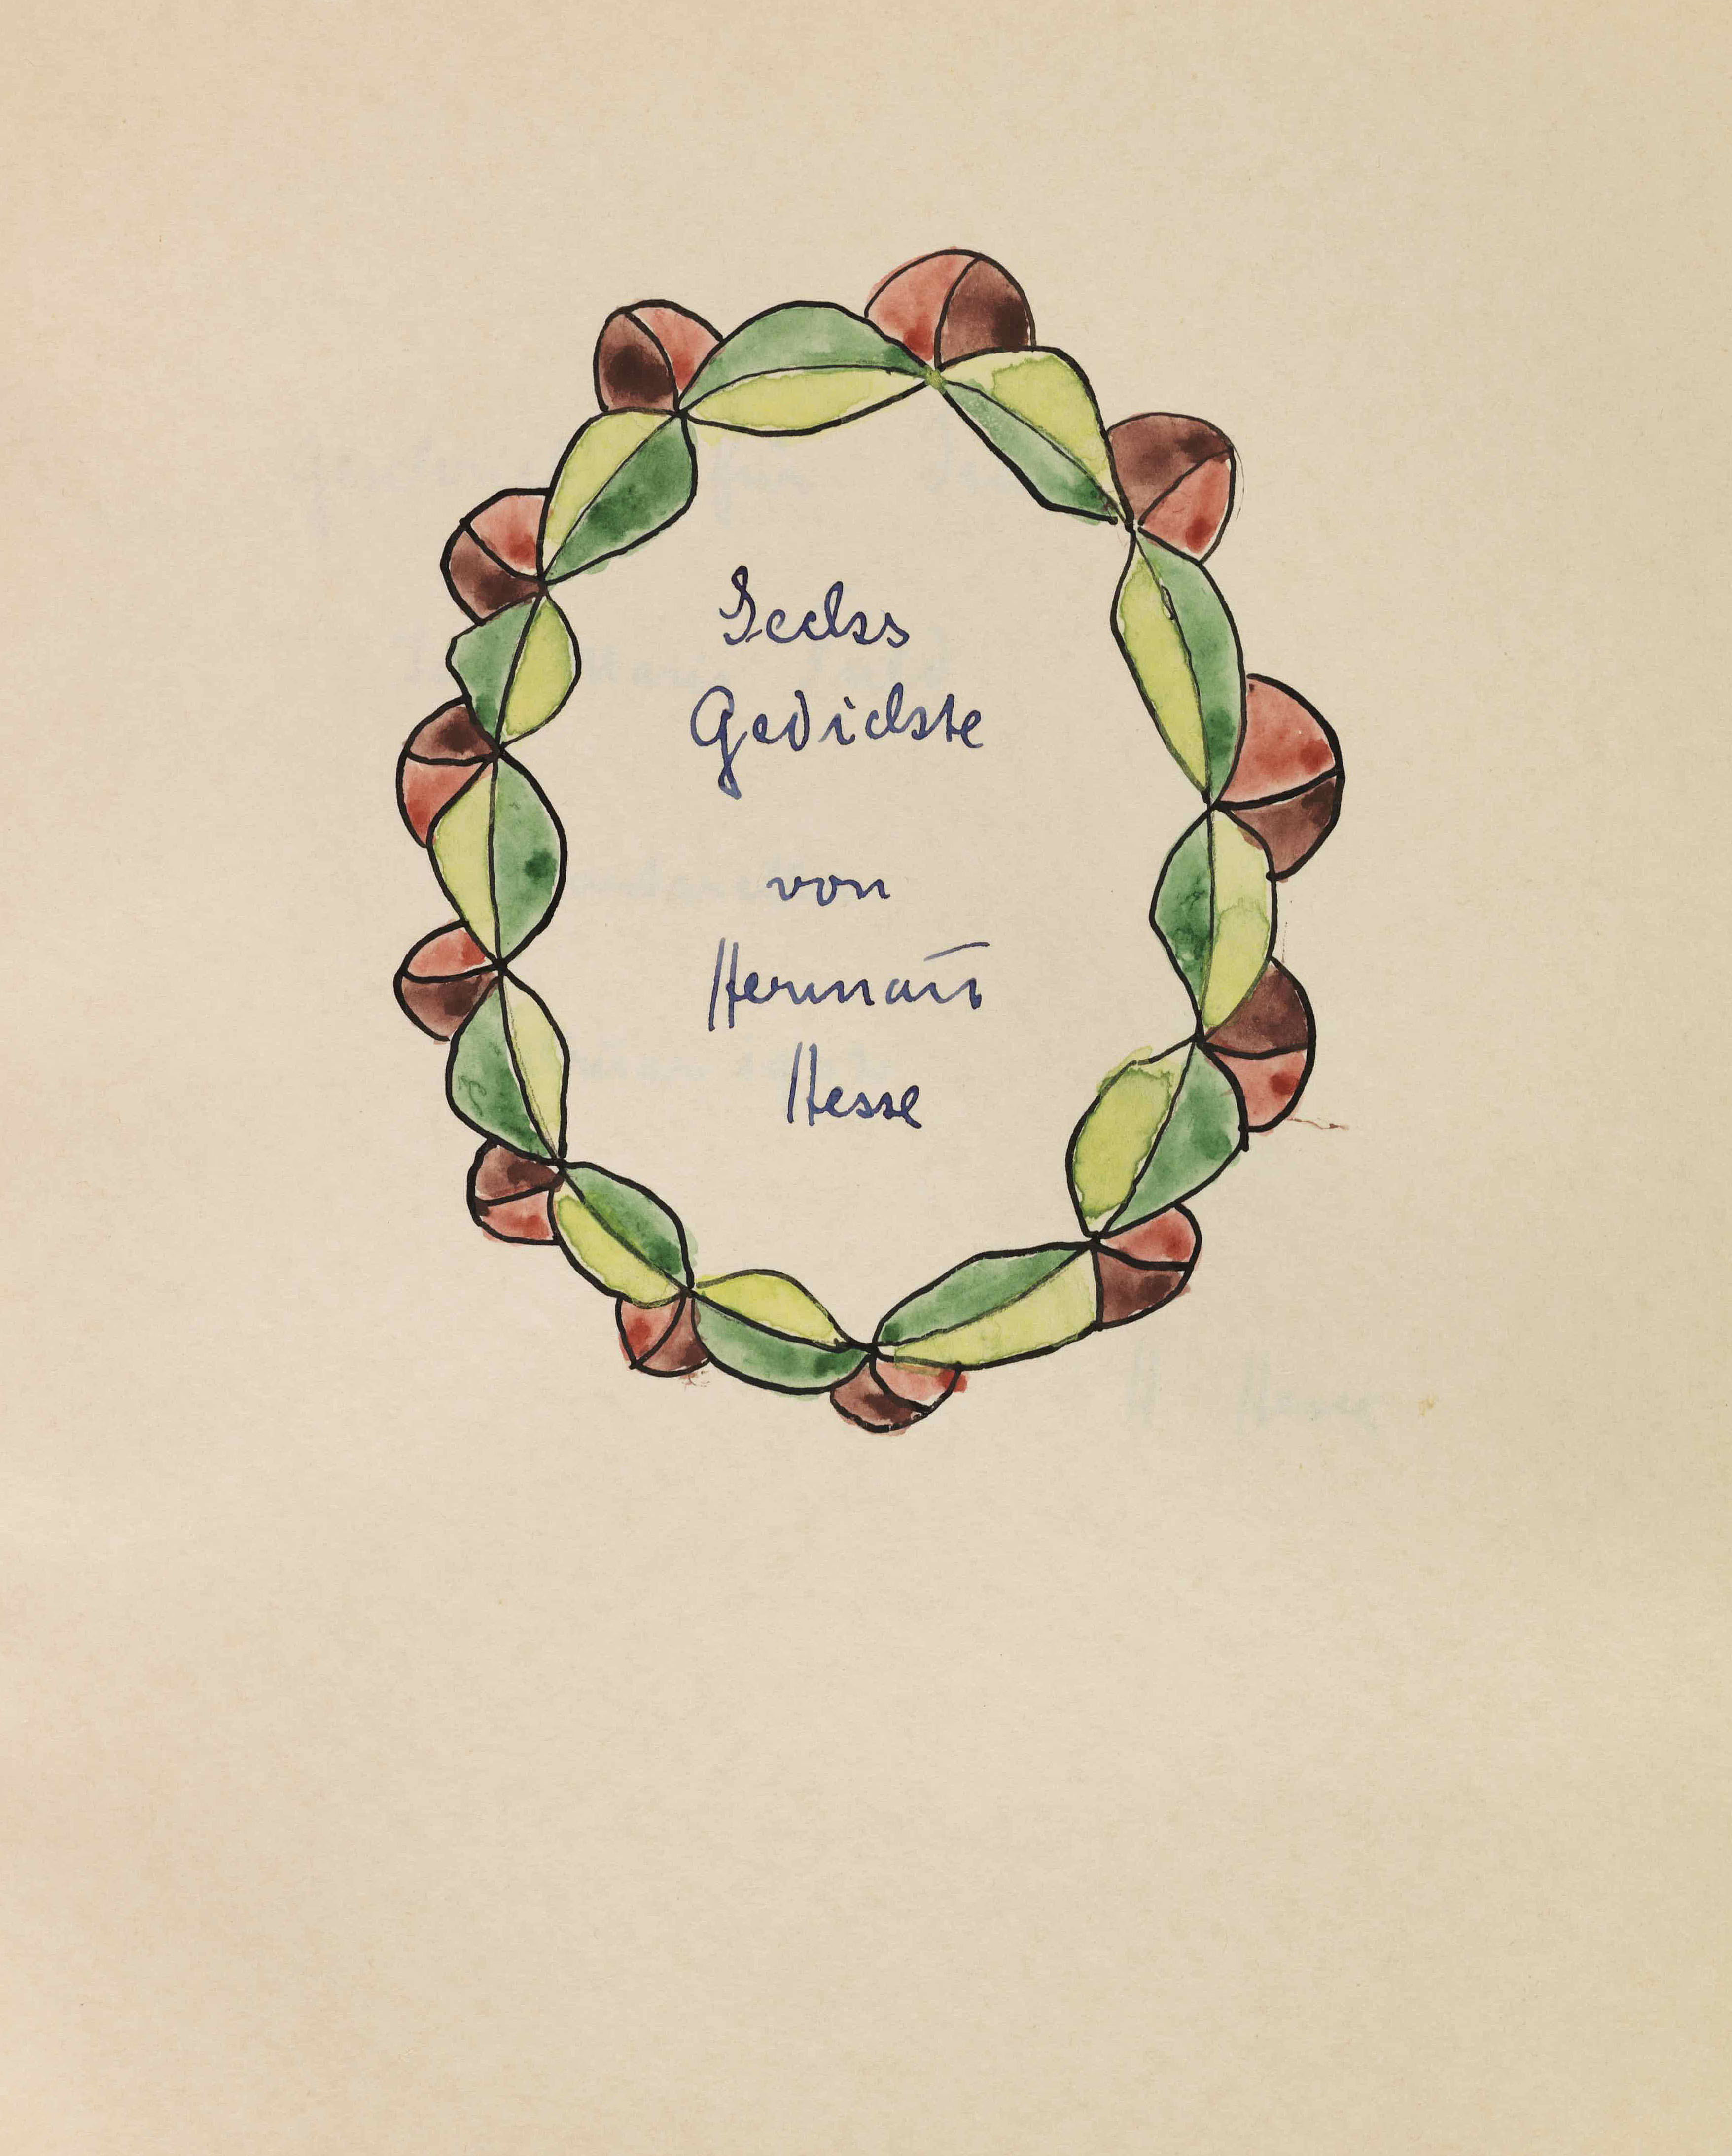 Sechs
Gedichte
von
Hermañ
Hesse